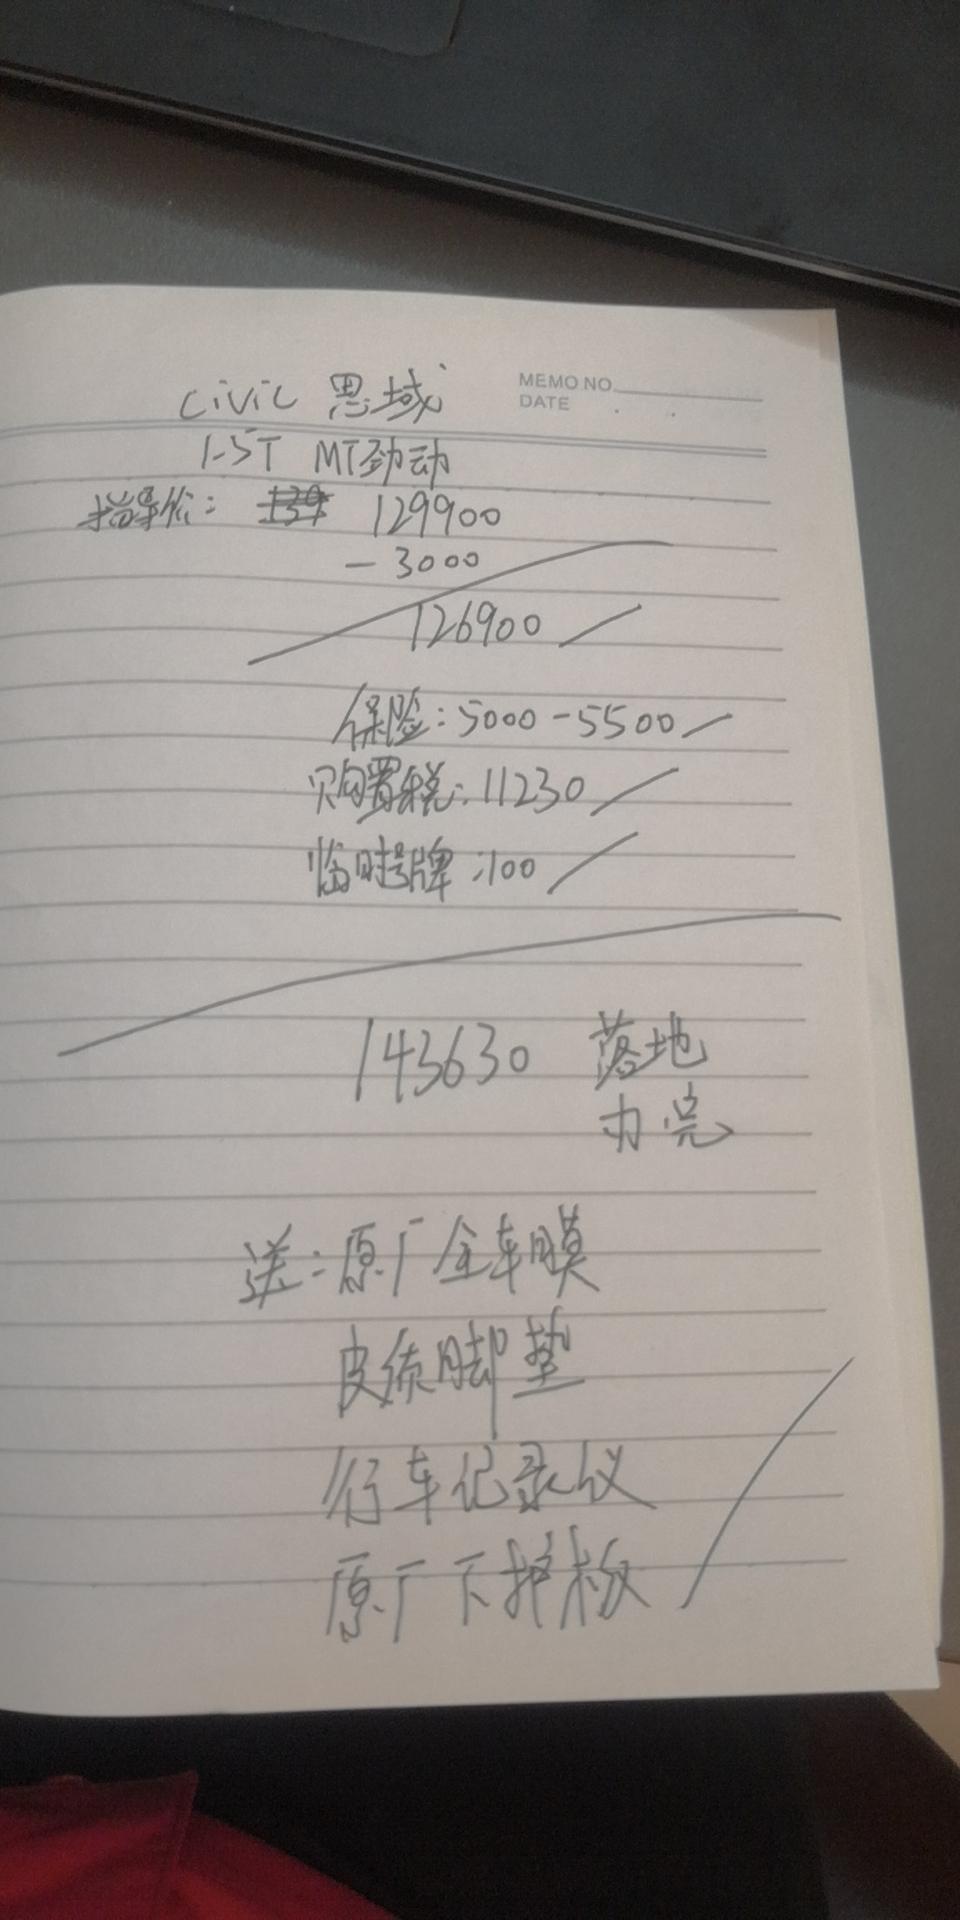 MEMO NO.
DATE
CiViC 思域
1.5T MT劲动
指导价: 129900
-3000
126900
保险:5000-5500
购置税:11230
临时号牌:100
143630 落地
办完
送:原厂全车膜
皮质脚垫
行车记录仪
原厂下护板